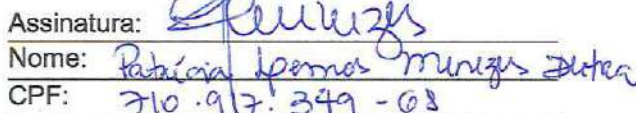 Assinatura: Menezes
Nome: Patrícia Lemos Menezes Dutra
CPF: 710.917.349-68